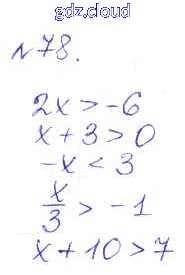 gdz.cloud
№78.
2x > -6
x + 3 > 0
-x < 3
x/3 > -1
x + 10 > 7